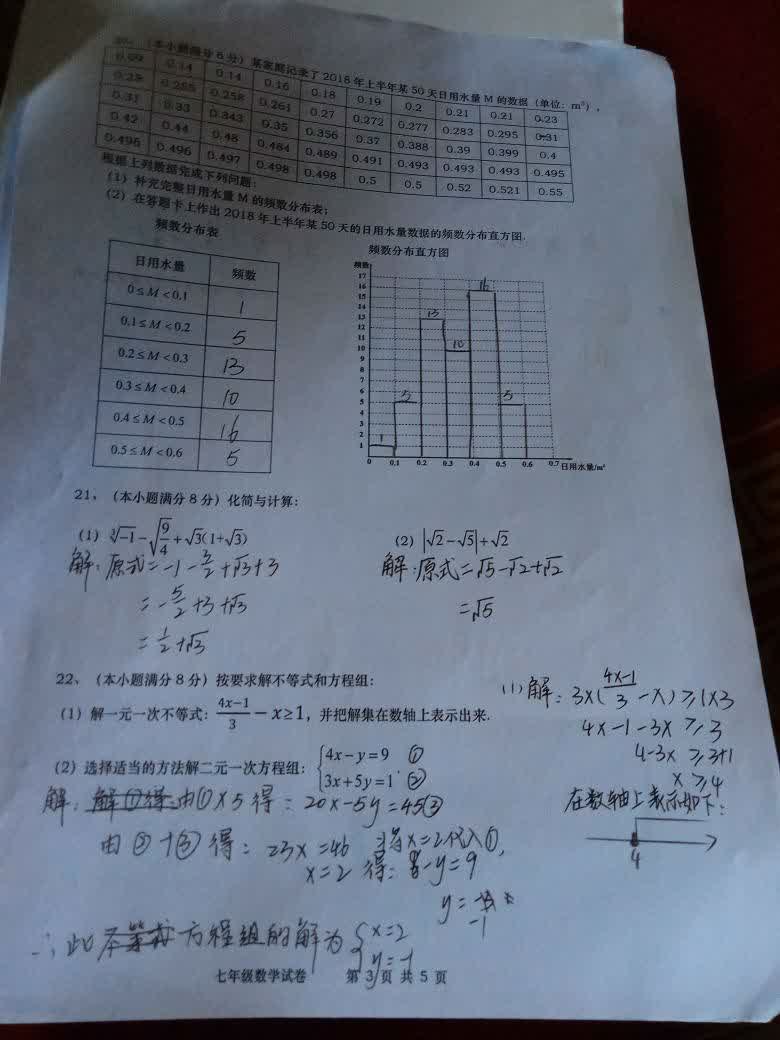 20、(本小题满分6分)某家庭记录了2018年上半年某50天日用水量M的数据(单位:m³),
0.09 0.14 0.14 0.16 0.18 0.19 0.2 0.21 0.21 0.23
0.25 0.255 0.258 0.261 0.27 0.272 0.277 0.283 0.295 0.31
0.31 0.33 0.343 0.35 0.356 0.37 0.388 0.39 0.399 0.4
0.42 0.44 0.48 0.484 0.489 0.491 0.493 0.493 0.493 0.495
0.495 0.496 0.497 0.498 0.498 0.5 0.5 0.52 0.521 0.55
根据上列数据完成下列问题:
(1)补充完整日用水量M的频数分布表;
(2)在答题卡上作出2018年上半年某50天的日用水量数据的频数分布直方图.
频数分布表
日用水量 频数
0≤M<0.1 1
0.1≤M<0.2 5
0.2≤M<0.3 13
0.3≤M<0.4 10
0.4≤M<0.5 16
0.5≤M<0.6 5
频数分布直方图
频数
17
16
15
14
13
12
11
10
9
8
7
6
5
4
3
2
1
1 5 13 10 16 5
0 0.1 0.2 0.3 0.4 0.5 0.6 0.7 日用水量/m³
21、(本小题满分8分)化简与计算:
(1) ∛-1-√(9/4)+√3(1+√3)
解:原式=-1-3/2+√3+3
=-5/2+3+√3
=1/2+√3
(2) |√2-√5|+√2
解:原式=√5-√2+√2
=√5
22、(本小题满分8分)按要求解不等式和方程组:
(1)解一元一次不等式:(4x-1)/3-x≥1,并把解集在数轴上表示出来.
(1)解:3×((4x-1)/3-x)≥1×3
4x-1-3x≥3
4-3x≥3+1
x≥4
在数轴上表示如下:
4
(2)选择适当的方法解二元一次方程组:{4x-y=9 ① 3x+5y=1. ②
解:由①×5得:20x-5y=45③
由②+③得:23x=46 将x=2代入①,
x=2 得:8-y=9
y=-1
∴此方程组的解为{x=2 y=-1
七年级数学试卷 第3页 共5页